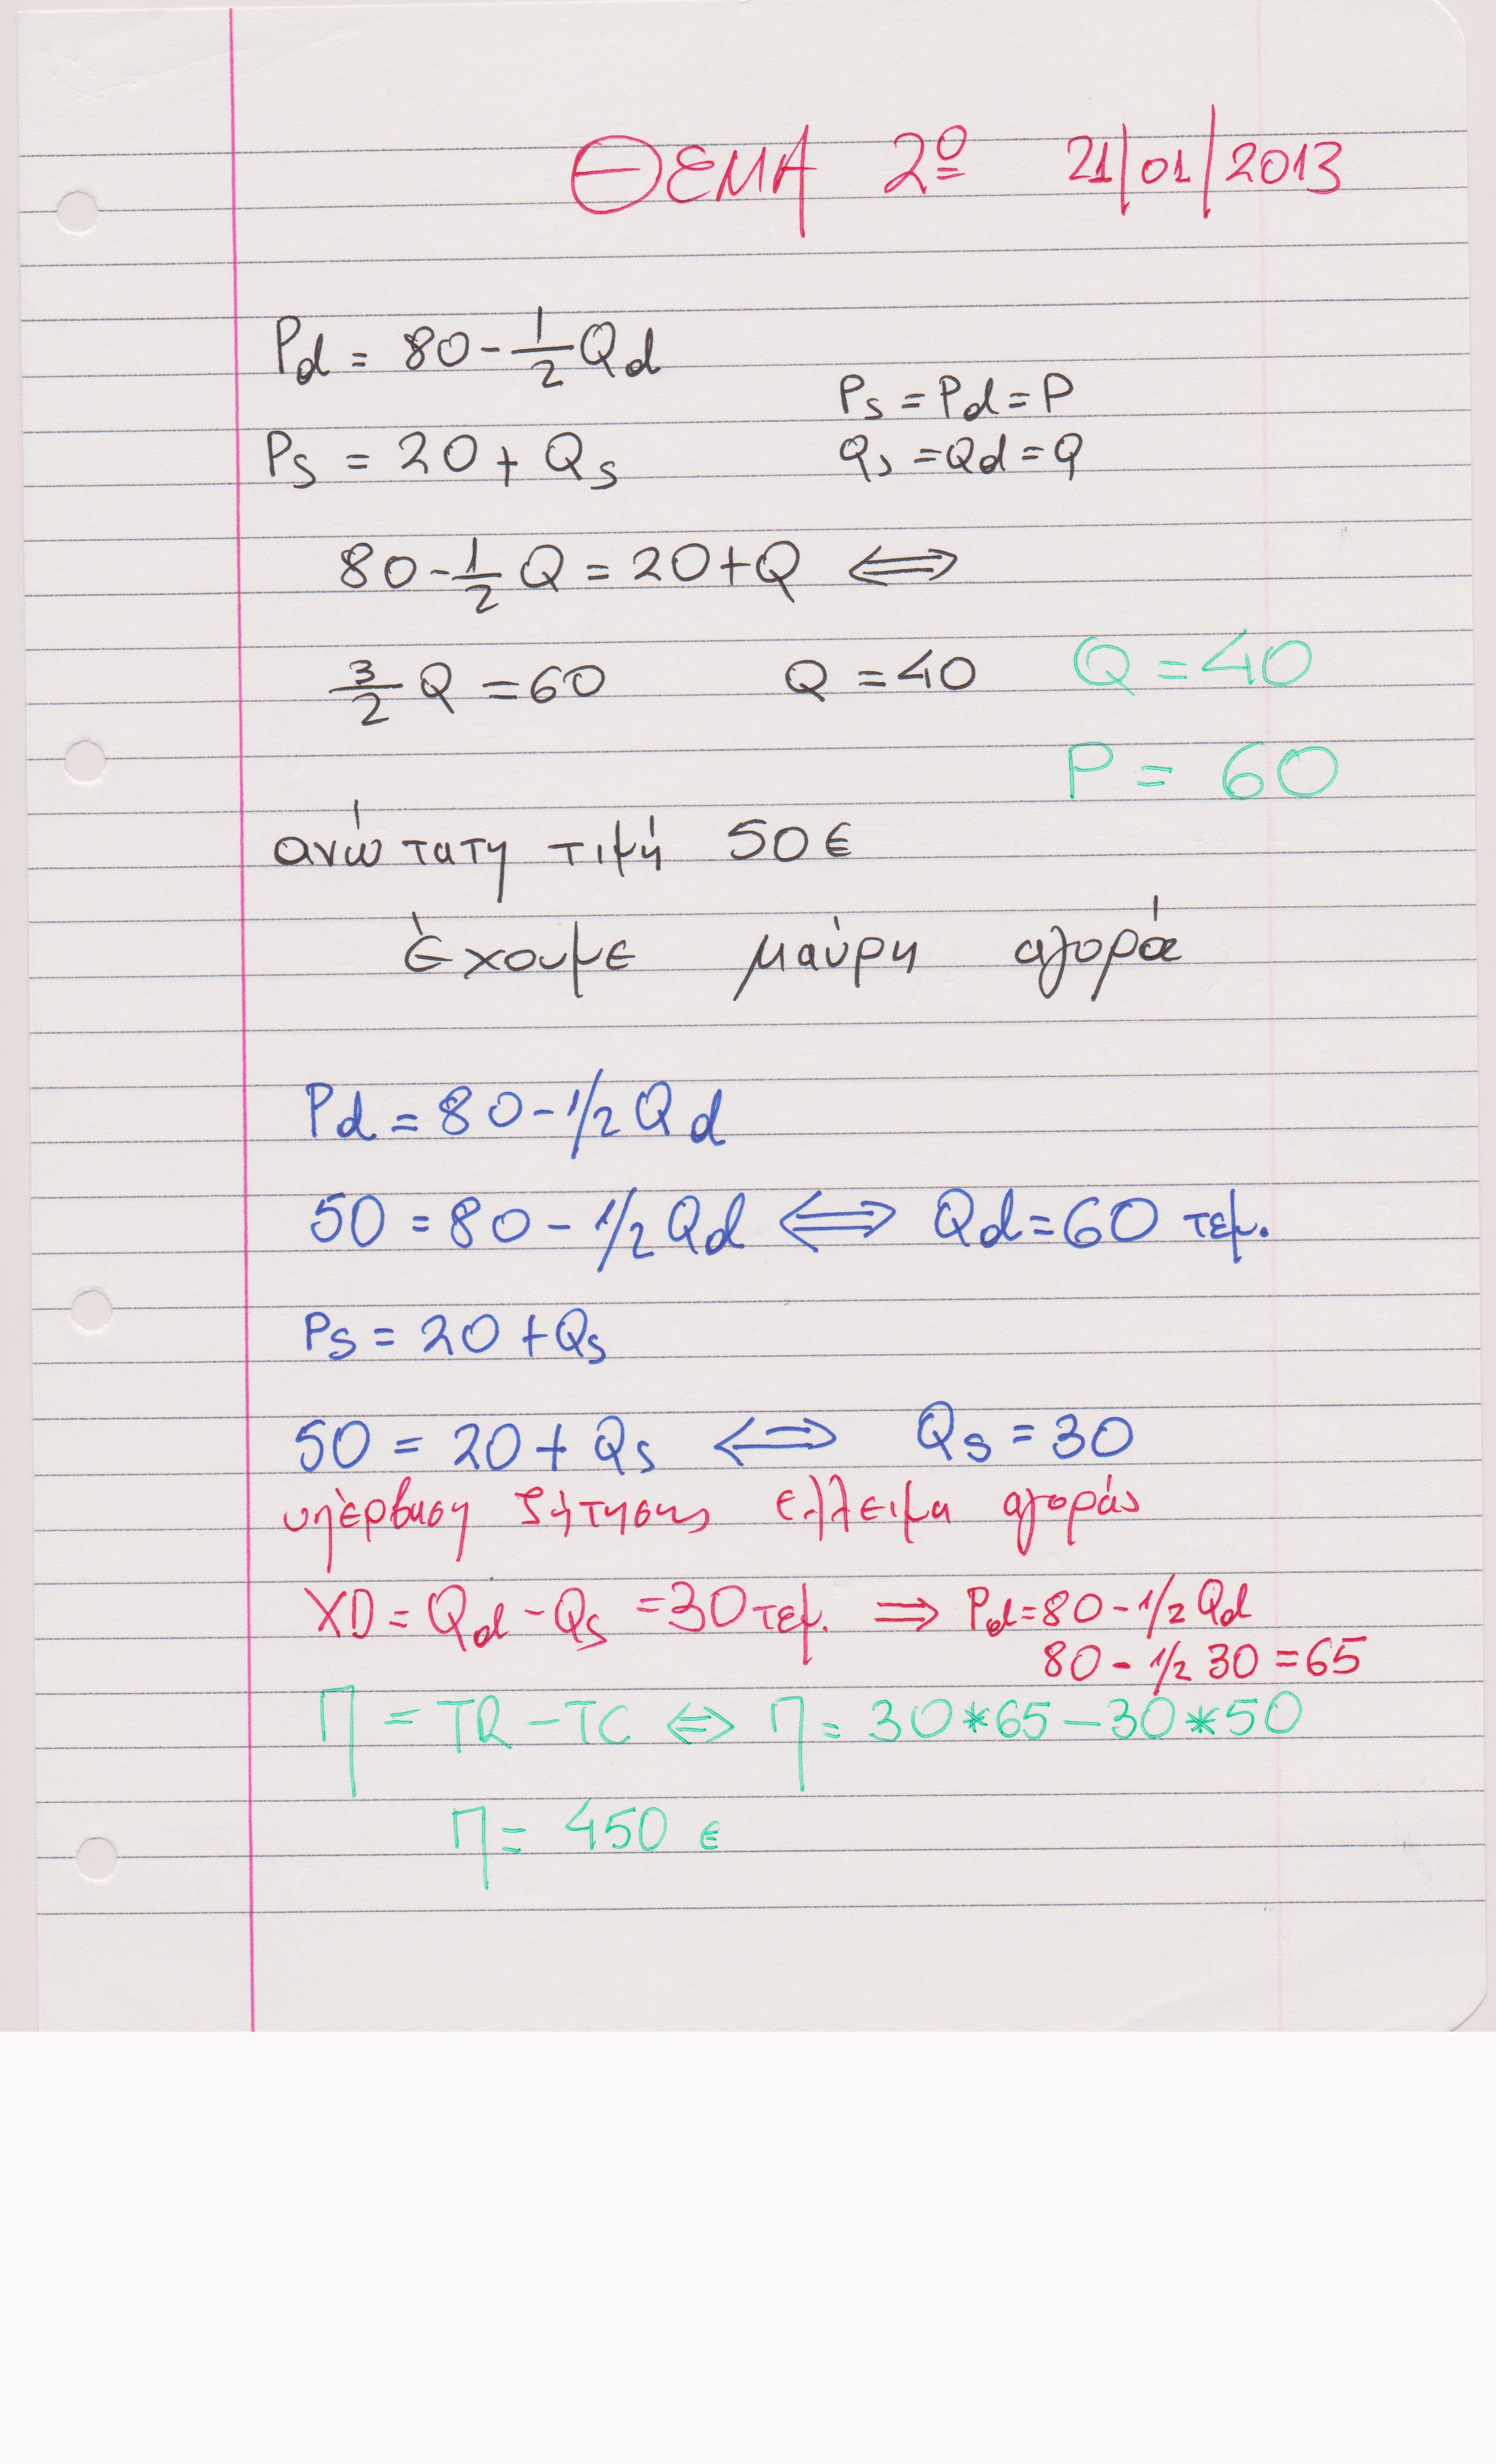 ΘΕΜΑ 2º 21/01/2013
Pd = 80 - 1/2 Qd
Ps = Pd = P
Ps = 20 + Qs
Qs = Qd = Q
80 - 1/2 Q = 20 + Q ⟺
3/2 Q = 60 Q = 40 Q = 40
P = 60
ανώτατη τιμή 50 €
Έχουμε μαύρη αγορά
Pd = 80 - 1/2 Qd
50 = 80 - 1/2 Qd ⟺ Qd = 60 τεμ.
Ps = 20 + Qs
50 = 20 + Qs ⟺ Qs = 30
υπέρβαση ζήτησης έλλειμα αγοράς
XD = Qd - Qs = 30 τεμ. ⟹ Pd = 80 - 1/2 Qd
80 - 1/2 30 = 65
Π = TR - TC ⟺ Π = 30*65 - 30*50
Π = 450 €